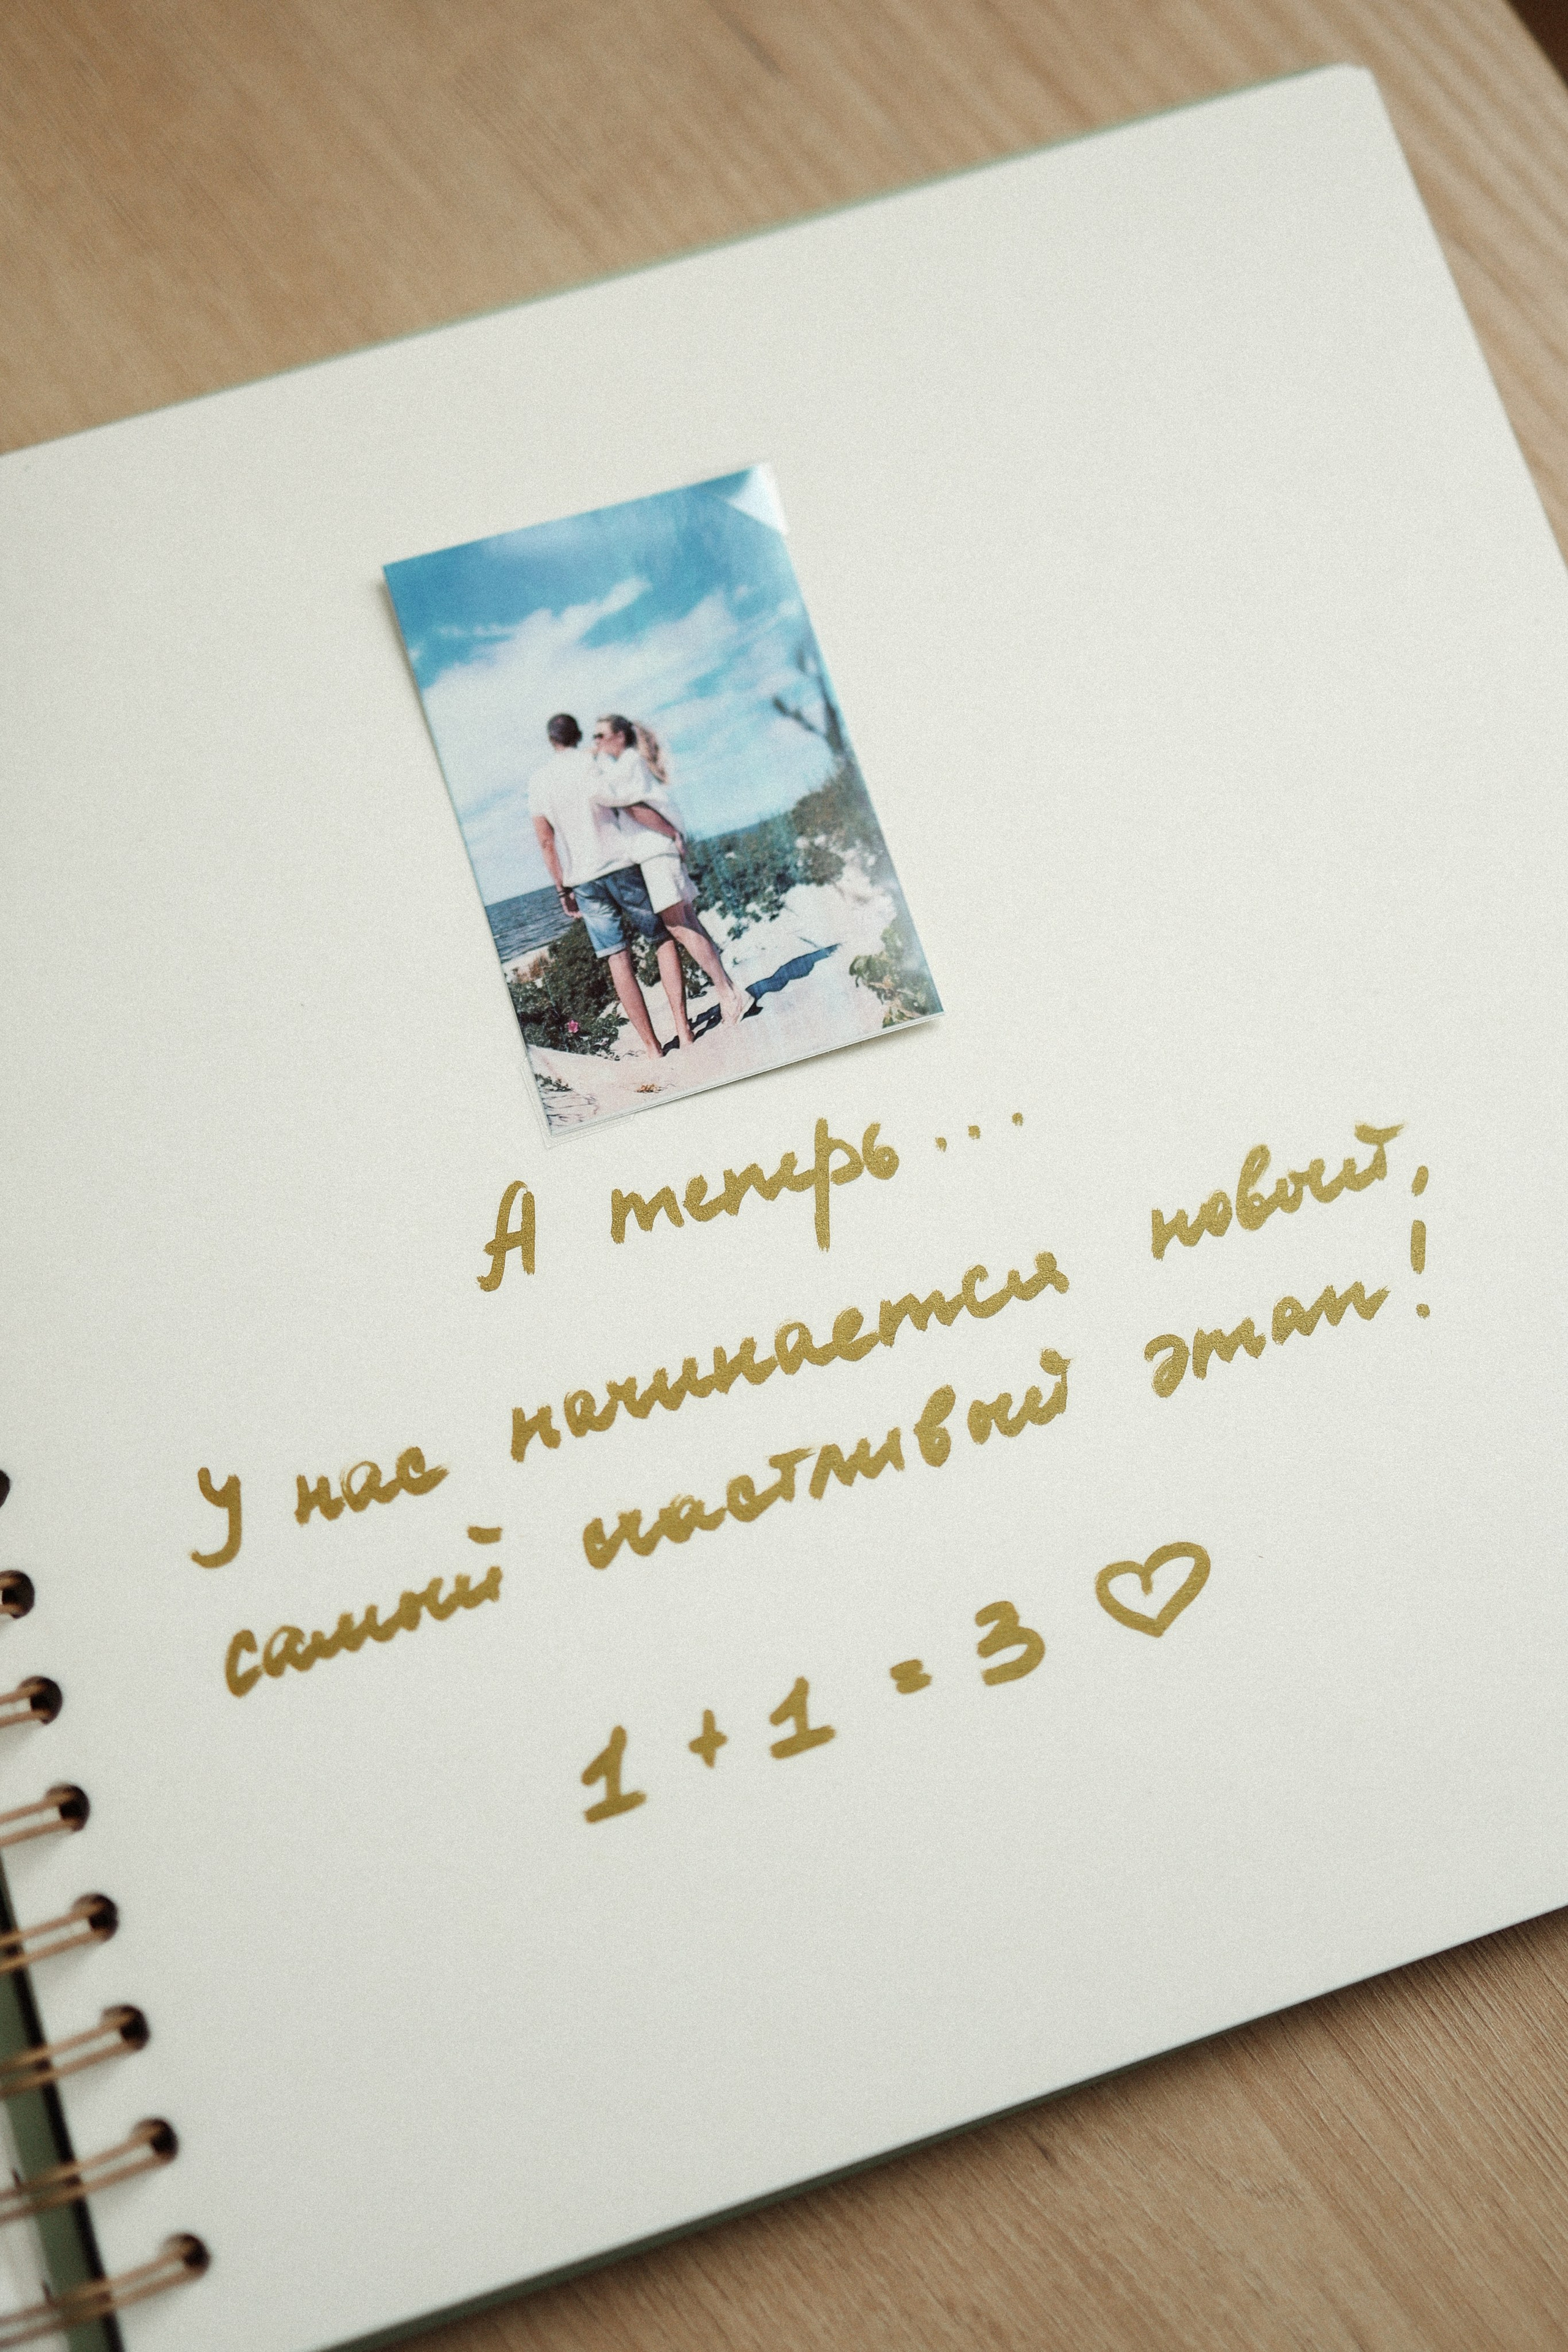 А теперь...
У нас начинается новый,
самый счастливый этап!
1 + 1 = 3 ♡